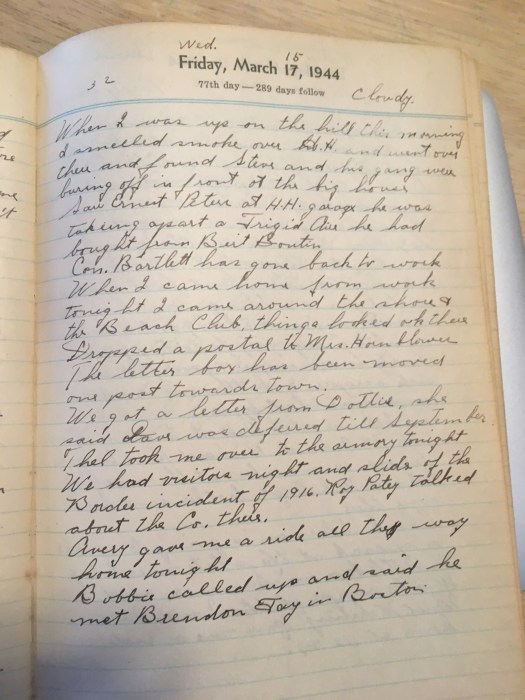 Wed.
15
Friday, March 17, 1944
77th day — 289 days follow
32
Cloudy.
When I was up on the hill this morning
I smelled smoke over H.H. and went over
there and found Steve and his gang were
buring off in front of the big house
Saw Ernest Peterr at H.H. garage he was
taking apart a Frigid Aire he had
bought from Bert Boutin
Con. Bartlett has gone back to work
When I came home from work
tonight I came around the shore &
the Beach Club, things looked ok there
Dropped a postal to Mrs. Hornblower
The letter box has been moved
one post towards town.
We got a letter from Dottie, she
said Dave was deferred till September.
Thel took me over to the armory tonight
We had visitors night and slids of the
Border incident of 1916. Roy Patey talked
about the Co. there.
Avery gave me a ride all the way
home tonight
Bobbie called up and said he
met Brendon Fay in Boston